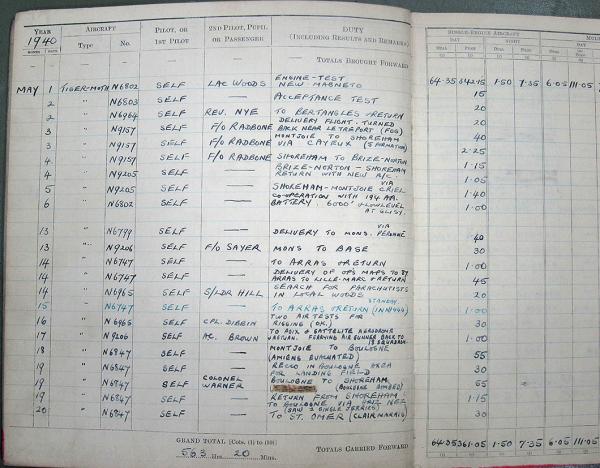 YEAR AIRCRAFT PILOT, OR 2ND PILOT, PUPIL DUTY SINGLE-ENGINE AIRCRAFT
1940 Type No. 1ST PILOT OR PASSENGER (INCLUDING RESULTS AND REMARKS) DAY NIGHT
MONTH DATE DUAL PILOT DUAL PILOT
TOTALS BROUGHT FORWARD
ENGINE-TEST
MAY 1 TIGER-MOTH N6802 SELF LAC WOODS NEW MAGNETO 64.35 342.15 1.50 7.35 6.05 111.05
15
2 " N6803 SELF — ACCEPTANCE TEST
20
2 " N6964 SELF REV. NYE TO BERTANGLES & RETURN
20
3 " N9157 SELF F/O RADBONE DELIVERY FLIGHT. TURNED
BACK NEAR LE TREPORT (FOG)
40
3 " N9157 SELF F/O RADBONE MONTJOIE TO SHOREHAM
VIA CAYEUX (5 FORMATION)
2.25
4 " N9157 SELF F/O RADBONE SHOREHAM TO BRIZE-NORTON
1.15
4 " N9205 SELF — BRIZE-NORTON - SHOREHAM
RETURN WITH NEW A/C.
1.05
5 " N9205 SELF — SHOREHAM-MONTJOIE VIA CRIEL
1.40
6 " N6802 SELF — CO-OPERATION WITH 194 AA.
BATTERY. 6000' & LOW LEVEL
AT GLISY.
1.00
13 " N6799 SELF — DELIVERY TO MONS. VIA PERONNE
40
13 " N9206 SELF F/O SAYER MONS TO BASE
30
14 " N6747 SELF — TO ARRAS & RETURN
1.00
14 " N6747 SELF — DELIVERY OF OPS MAPS TO
ARRAS TO LILLE-MARC & RETURN
45
14 " N6965 SELF S/LDR HILL SEARCH FOR PARACHUTISTS
IN LOCAL WOODS
20
15 " N6747 SELF — TO ARRAS & RETURN STANDBY
1.00
16 " N6965 SELF CPL. DIBBIN TWO AIR TESTS FOR
RIGGING (OK.)
30
17 " N9206 SELF AC. BROWN TO POIX & SATTELITE AERODROME
& RETURN. FERRYING AIR GUNNER BACK TO
18 SQUADRON.
1.00
18 " N6847 SELF — MONTJOIE TO BOULOGNE
(AMIENS EVACUATED)
55
19 " N6847 SELF — RECCO IN BOULOGNE AREA
FOR LANDING FIELD
30
19 " N6847 SELF COLONEL WARNER BOULOGNE TO SHOREHAM
(BOULOGNE BOMBED)
55
19 " N6847 SELF — RETURN FROM SHOREHAM
TO BOULOGNE VIA GRIZ NEZ
(SAW 2 SINGLE JERRIES)
1.15
20 " N6847 SELF — TO ST. OMER (CLAIRMARAIS)
30
GRAND TOTAL [Cols. (1) to (10)]
563 Hrs. 20 Mins.
TOTALS CARRIED FORWARD 64.35 361.05 1.50 7.35 6.05 111.05